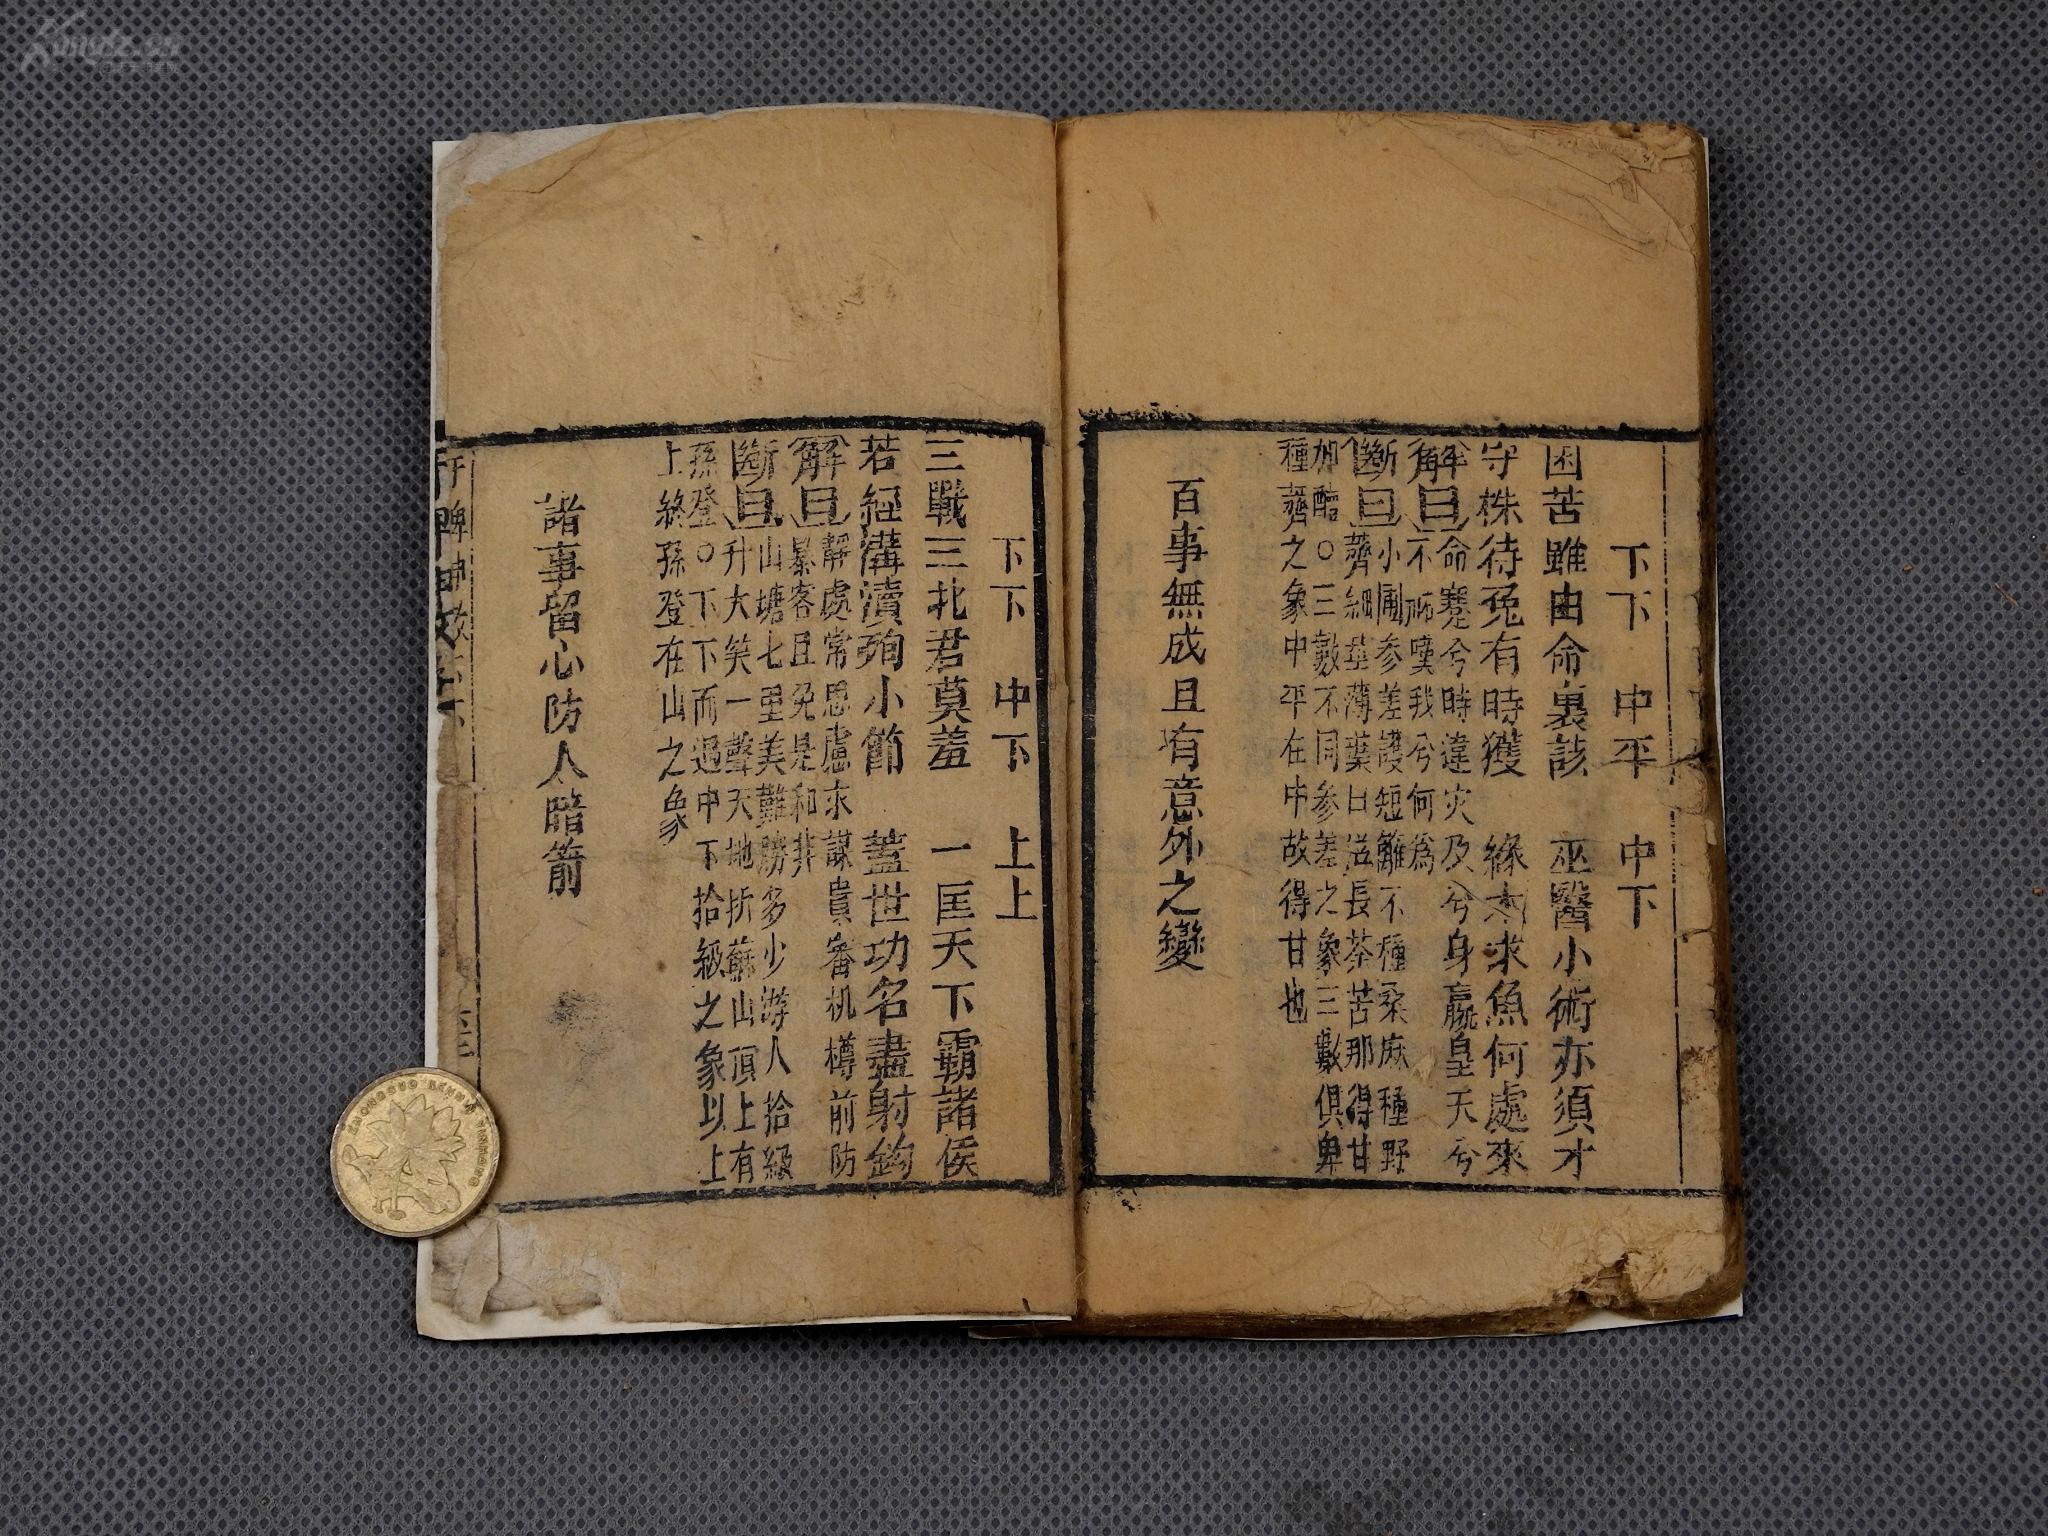 下下 中平 中下
困苦雖由命裏該 巫醫小術亦須才
守株待兔有時獲 緣木求魚何處來
解曰 命蹇兮時違灾及兮身羸皇天兮
不祐嘆我兮何爲
斷曰 小圃参差護短籬不種桑麻種野
薺細莖薄葉日滋長荼苦那得甘
如醴〇三數不同参差之象三數俱卑
種薺之象中平在中故得甘也
百事無成且有意外之變
下下 中下 上上
三戰三北君莫羞 一匡天下霸諸侯
若經溝瀆殉小節 蓋世功名盡射鈎
解曰 靜處常思慮求謀貴審机樽前防
暴客且免是和非
斷曰 山塘七里美難勝多少游人拾級
升大笑一聲天地折蘇山頂上有
孫登〇下下而過中下拾級之象以上
上終孫登在山之象
諸事留心防人暗箭
牙牌神數
Kongfz.cn